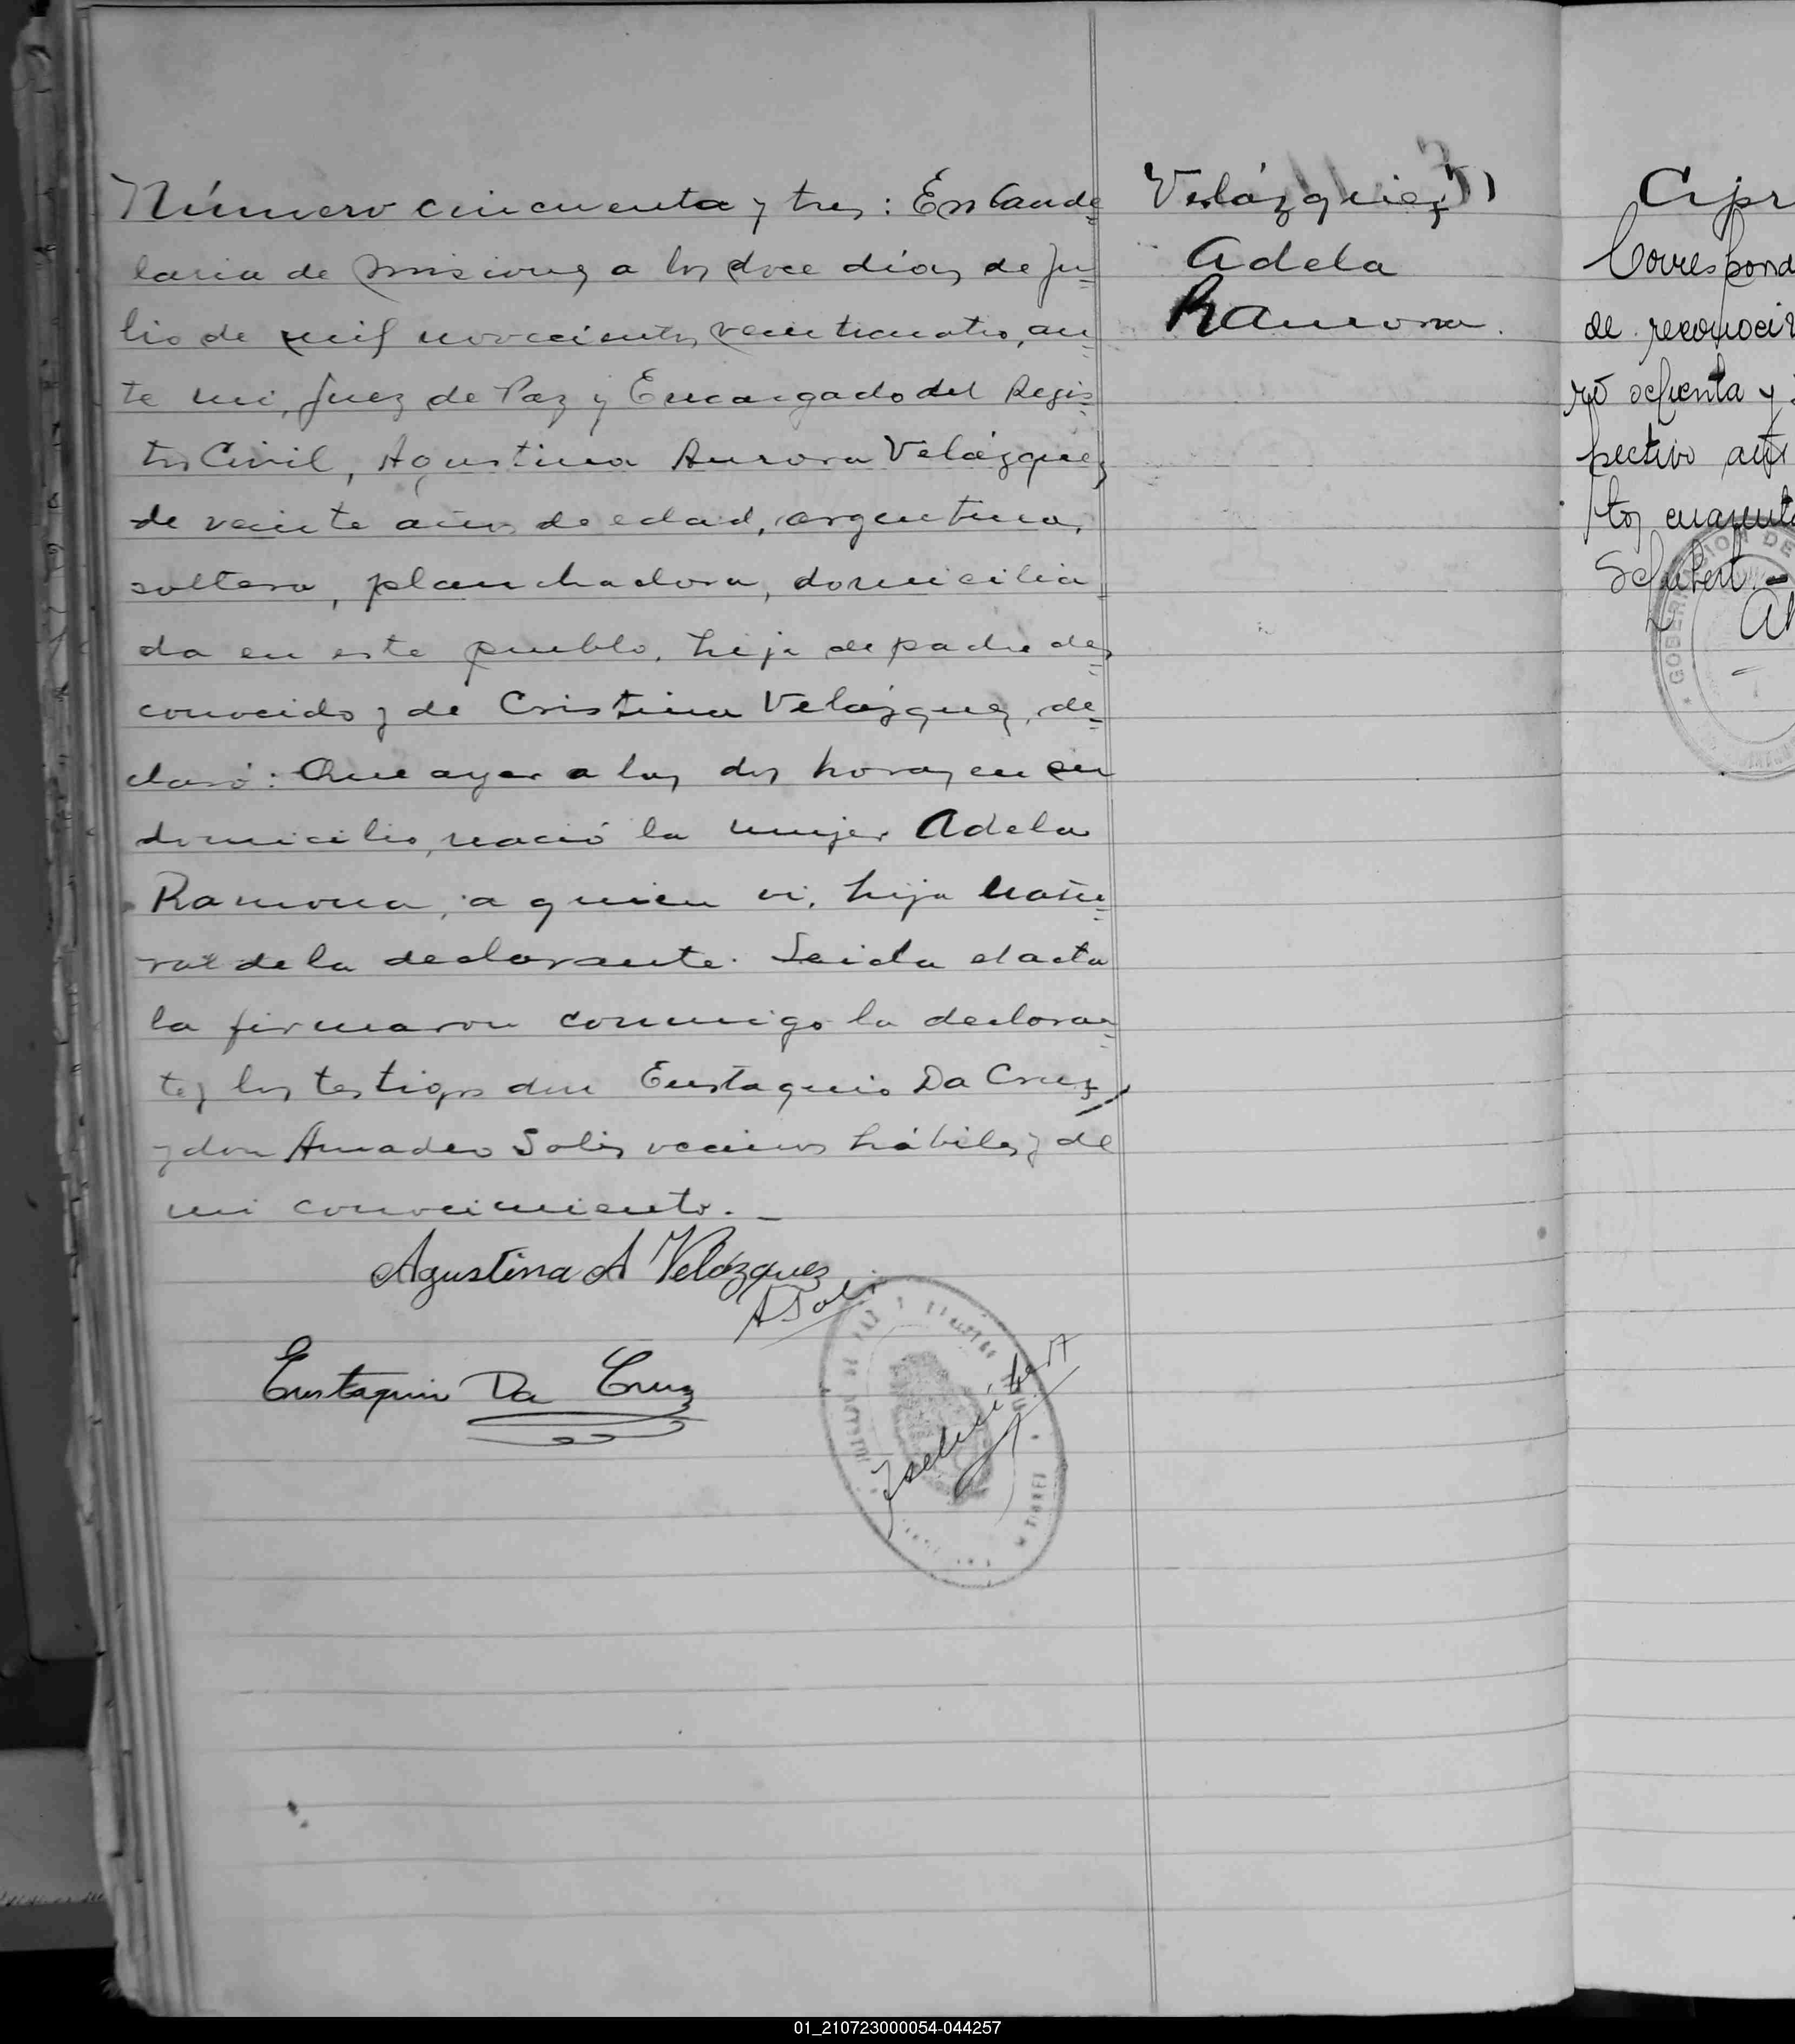 Número cincuenta y tres: En Cande=
laria de Misiones a los doce días de ju=
lio de mil novecientos veinticuatro, an=
te mi, Juez de Paz y Encargado del Regis=
tro Civil, Agustina Aurora Velázquez,
de veinte años de edad, argentina,
soltera, planchadora, domicilia=
da en este pueblo, hija de padre des=
conocido y de Cristina Velázquez, de=
claró: Que ayer a las dos horas en su
domicilio, nació la mujer Adela
Ramona, a quien vi, hija natu=
ral de la declarante. Leida el acta
la firmaron conmigo la declaran=
te y los testigos don Eustaquio Da Cruz,
y don Amadeo Solis vecinos hábiles y de
mi conocimiento. _
Agustina A Velázquez
A Solis
Eustaquio Da Cruz
Velázquez
Adela
Ramona.
Cipr
Correspond
de reconoci
ro ochenta y
pectivo
tos cuarenta
Schubert.-
GOBERNACION DE